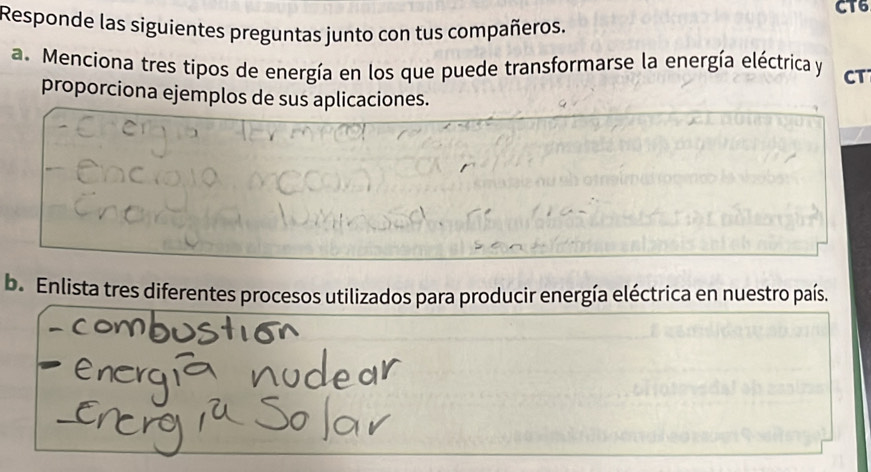 CT6
Responde las siguientes preguntas junto con tus compañeros.
a. Menciona tres tipos de energía en los que puede transformarse la energía eléctrica y
CT
proporciona ejemplos de sus aplicaciones.
- Energia
- Encioia
b. Enlista tres diferentes procesos utilizados para producir energía eléctrica en nuestro país.
- combustión
- energía nudear
- Energia Solar